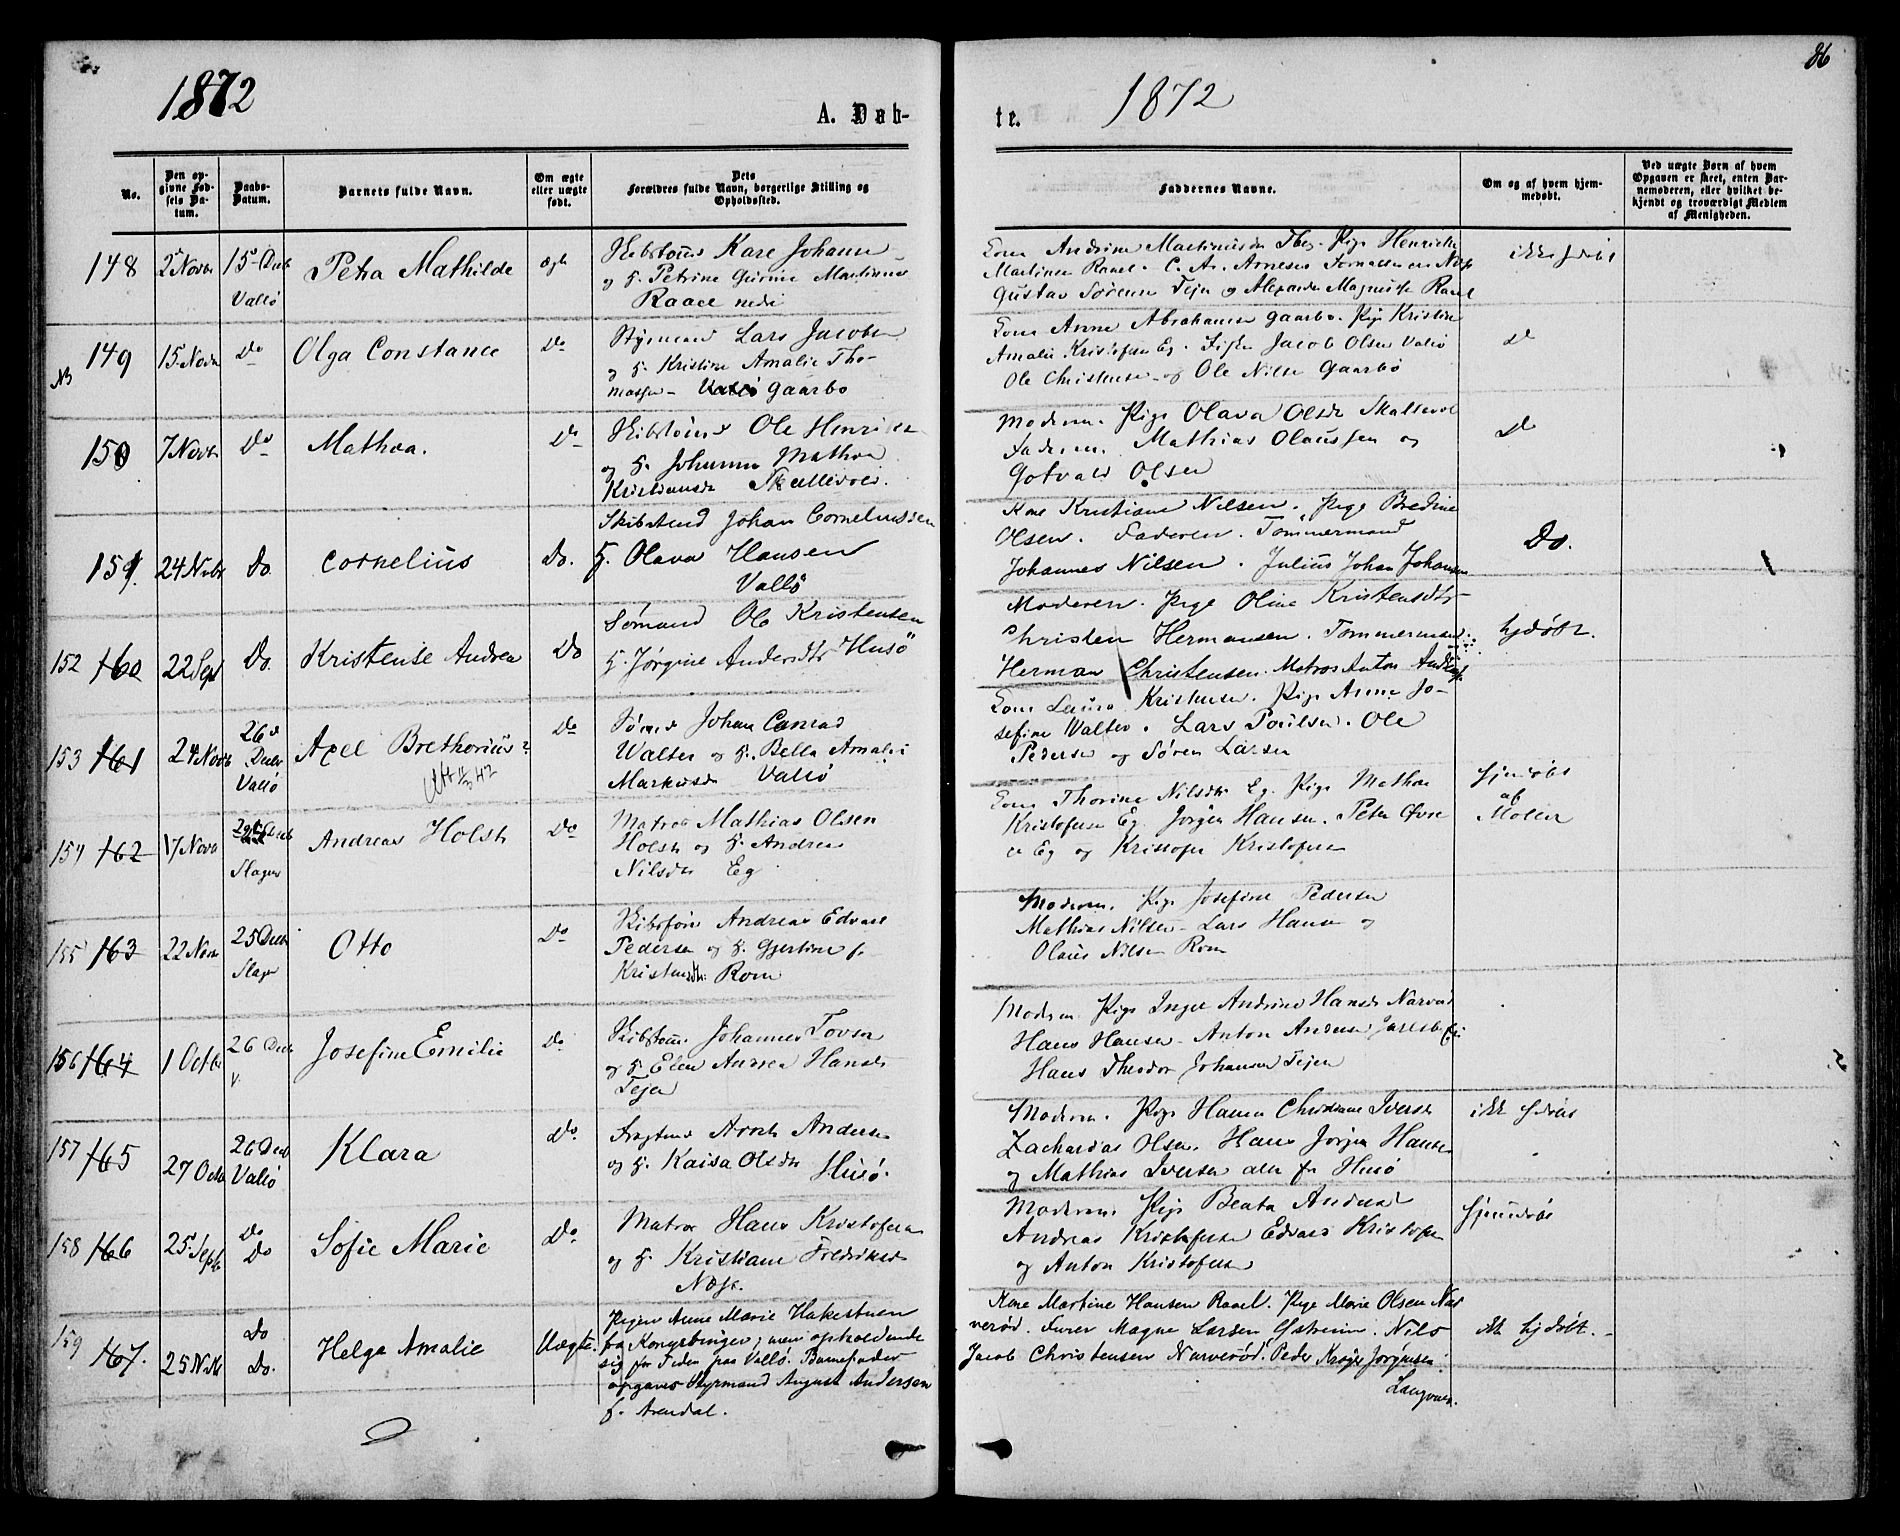 86
1872
1872
A. Døb-
te.
No.
Den opgivne Fødsels Datum.
Daabs-Datum.
Barnets fulde Navn.
Om ægte eller uægte født.
Dets Forældres fulde Navn, borgerlige Stilling og Opholdssted.
Faddernes Navne.
Om og af hvem hjemmedøbt.
Ved uægte Barn af hvem Opgaven er skeet, enten Barnemoderen, eller hvilket bekjendt og troværdigt Medlem af Menigheden.
148 2 Novbr 15 Decb Vallø Petra Mathilde ægte
Skibstømr Kare Johanne
og H. Petrine Gurine Martinus
Raael
Kone Andrine Martinusdr Pige Henriette
Martinsen Raael. C. A. Arnesen
Gustav Sørensen Tejen og Alexander Magnussen Raael
ikke hjdøbt
149 15 Novbr Do Olga Constance Do
Styrmand Lars Jacobsen
og H. Kristine Amalie Tho-
massen - Gaarbo
Kone Anne Abrahamsen Gaarbo. Pige Kristine
Amalie Kristofersen Eg. Jacob Olsen Vallø
Ole Christensen og Ole Nilsen Gaarbø
Do
150 7 Novbr Do Mathea. Do
Skibstømr Ole Henriksen
og H. Johanne Mathea
Kristiansdr Skallevold.
Moderen. Pige Olava Olsdr Skallevol
Faderen. Mathias Olaussen og
Gotvald Olsen
Do
151. 24 Nvbr Do. Cornelius Do.
Skibstmd Johan Corneliussen
H. Olava Hansen
Vallø
Kone Kristiane Nilsen. Pige Bredine
Olsen. Faderen. Tømmermand
Johannes Nilsen. Julius Johan Johansen
Do.
152 160 22 Sept Do. Kristense Andrea Do
Sømand Ole Kristensen
H. Jørgine Andersdtr Husø
Moderen. Pige Oline Kristensdtr
Christen Hermansen. Tømmermand
Herman Christensen. Matros Anton
hjdøbt.
153 161 24 Novb 26 Decbr Vallø Axel Brethorius Do
Sømd Johan Conrad
Walter og H. Bella Amalie
Markusdr Vallø
Kone Laura Kristensen. Pige Anne Jo-
sefine Walter. Lars Poulsen. Ole
Pedersen og Søren Larsen
154 162 17 Novb Decb Slagen Andreas Holst Do
Matros Mathias Olsen
Holst og H. Andrea
Nilsdr Eg
Kone Thorine Nilsdr Eg. Pige Mathea
Kristofersen Eg. Jørgen Hansen. Peter
Eg og Kristofer Kristofersen
hjemdøbt
af
Moderen
155 163 22 Novbr 25 Decbr Slagen Otto Do
Skibsfører Andreas Edvard
Pedersen og H. Gjertine
Kristensdtr: Rom
Moderen. Pige Josefine Pedersen
Mathias Nilsen Lars Hansen og
Olaus Nilsen Rom
156 164 1 Octbr 26 Decb V. Josefine Emilie Do
Skibstømr Johannes Tovsen
og H. Elen Andrea Hansdr
Tejen
Moderen Pige Inger Andrine Hansdr Narverød
Hans Hansen Anton Andersen Jarlsberg
Hans Theodor Johansen Tejen
157 165 27 Octb 26 Decb Vallø Klara Do
Anders
og H. Kaisa Olsdr Husø.
Moderen. Pige Hanna Christiane Iversen
Zacharias Olsen. Hans Jørgen Hansen
og Mathias Iversen alle fr Husø
ikke hjdøbt
158 166 25 Septb Do Do Sofie Marie Do
Matros Hans Kristofersen
og H. Kristiane Fredriksdr
Næss.
Moderen Pige Beata Andersd
Andreas Kristofersen Edvard Kristofersen
og Anton Kristofersen
hjemmdøbt
159 167. 25 Nvbr Do Do. Helga Amalie Uægte.
Pigen Anne Marie Hakestuen
fra Kongsvinger, men opholdende
sig for Tiden paa Vallø. Barnefader
opgaves Styrmand August Andersen
f. Arendal.
Kone Martine Hansen Raael. Pige Marie Olsen Nar
verød. Furer Magne Larsen Gstrein. Nils
Jacob Christensen Narverød. Peder Krøger Jørgensen
Langvear.
ikk hjdøbt.